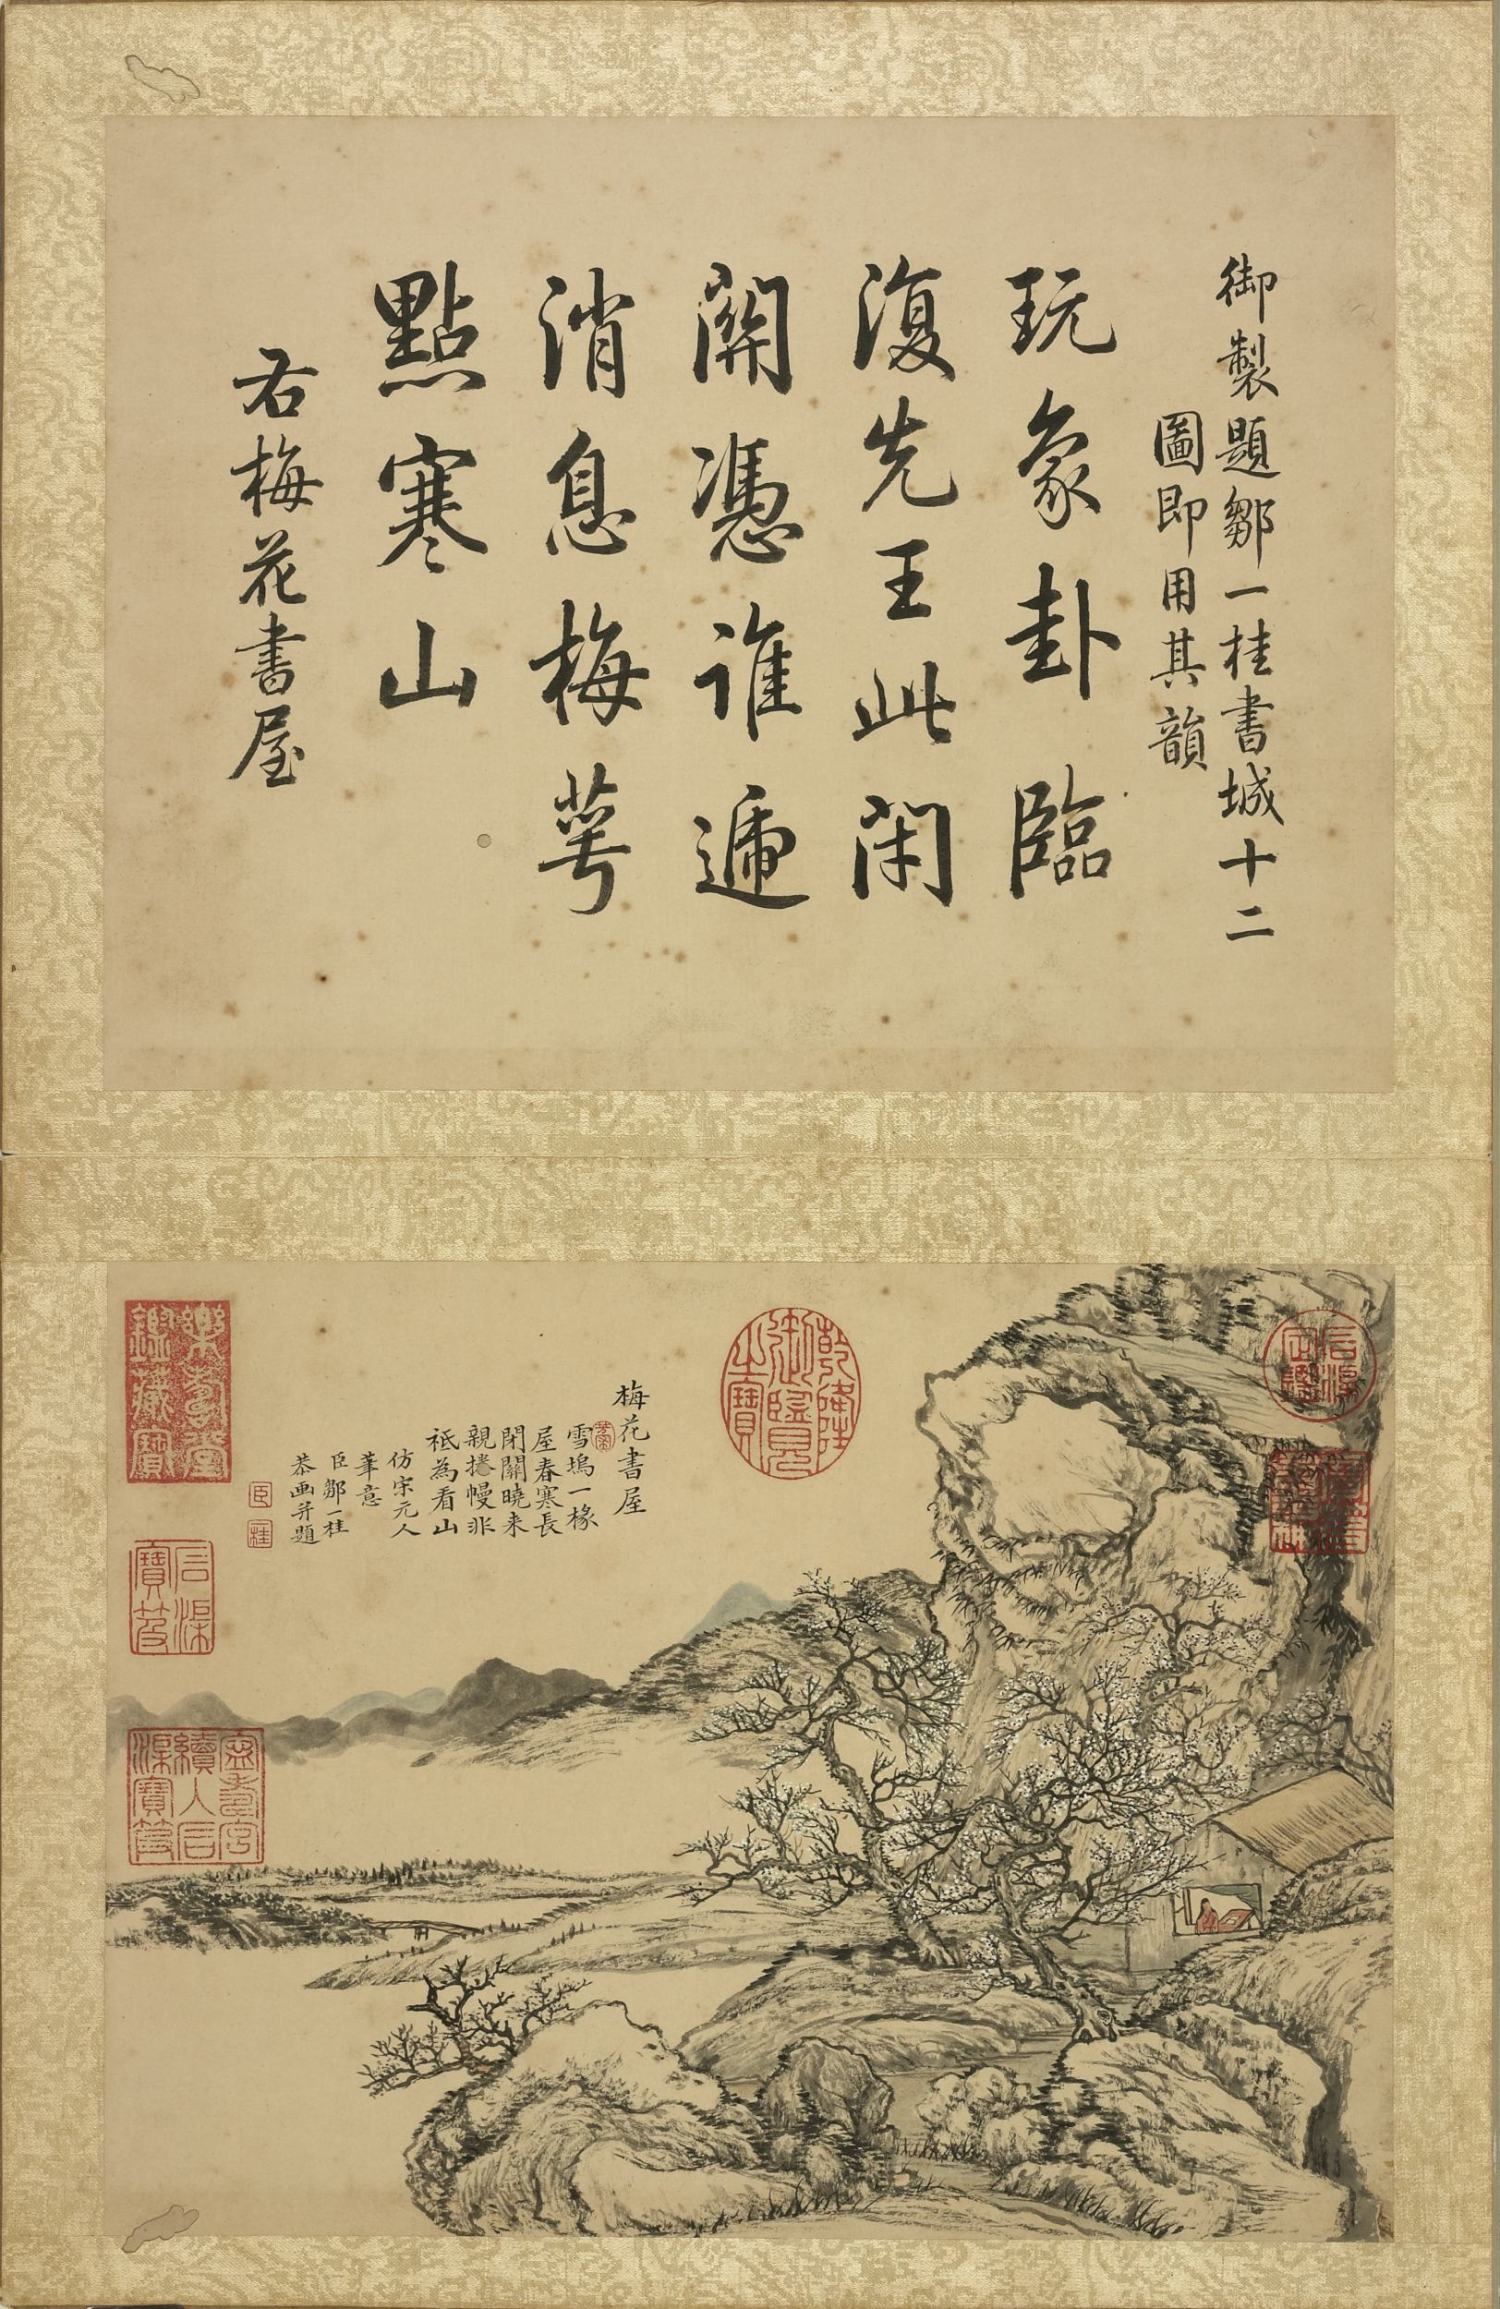 御製題鄒一桂書城十二
圖即用其韻
玩象卦臨
復先王此閉
關憑誰遞
消息梅萼
點寒山
右梅花書屋
梅花書屋
雪塢一椽
屋春寒長
閉關曉来
親捲幔非
祗為看山
仿宋元人
筆意
臣鄒一桂
恭画并題
臣
桂
乾隆
御覽
之寶
石渠
定鑑
寶笈
重編
樂壽堂
鑑藏寶
石渠
寶笈
寧壽宮
續入石
渠寶笈